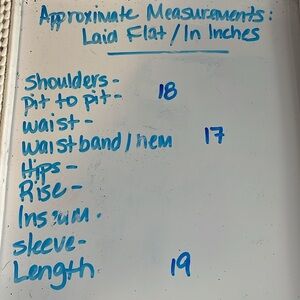 Approximate Measurements:
Laid Flat / In Inches
Shoulders -
pit to pit - 18
waist -
waistband / hem 17
Hips -
Rise -
Inseum.
sleeve -
Length 19